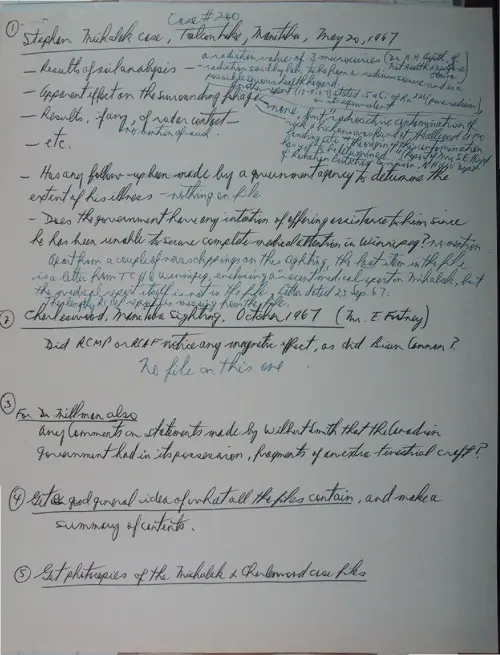 Case #200
① Stephen Michalak case, Falcon Lake, Manitoba, May 20, 1967
a radiation value of .3 microcuries (Dr. A.H. Booth, of
Nat. Health & Welfare
Ottawa
— Results of soil analysis — radiation could be from a radium source and is
possibly
— Apparent effect on the surrounding foliage
none, but "radioactive contamination of
— Results, if any, of radar contact —
no mention of such.
— etc.
— Has any follow-up been made by a government agency to determine the
extent of his illness — nothing on file
— Does the government have any intention of offering assistance to him since
he has been unable to secure complete medical attention in Winnipeg? no mention
Apart from a couple of news clippings on this sighting, the last item in the file
is a letter from TC HQ Winnipeg, enclosing a recent medical report on Michalak, but
the medical report itself is not in the file. Letter dated 25 Sep. 67.
report is missing from the file.
② Charleswood, Manitoba Sighting. October 1967 (Mr. E. Fortney)
Did RCMP or RCAF notice any magnetic effect, as did Brian Cannon?
No file on this one
③ For Dr. Millman also
any comments on statements made by Wilbert Smith that the Canadian
government had in its possession, fragments of an extra-terrestrial craft?
④ Get a good general idea of what all the files contain, and make a
summary of contents.
⑤ Get photocopies of the Michalak & Charleswood case files